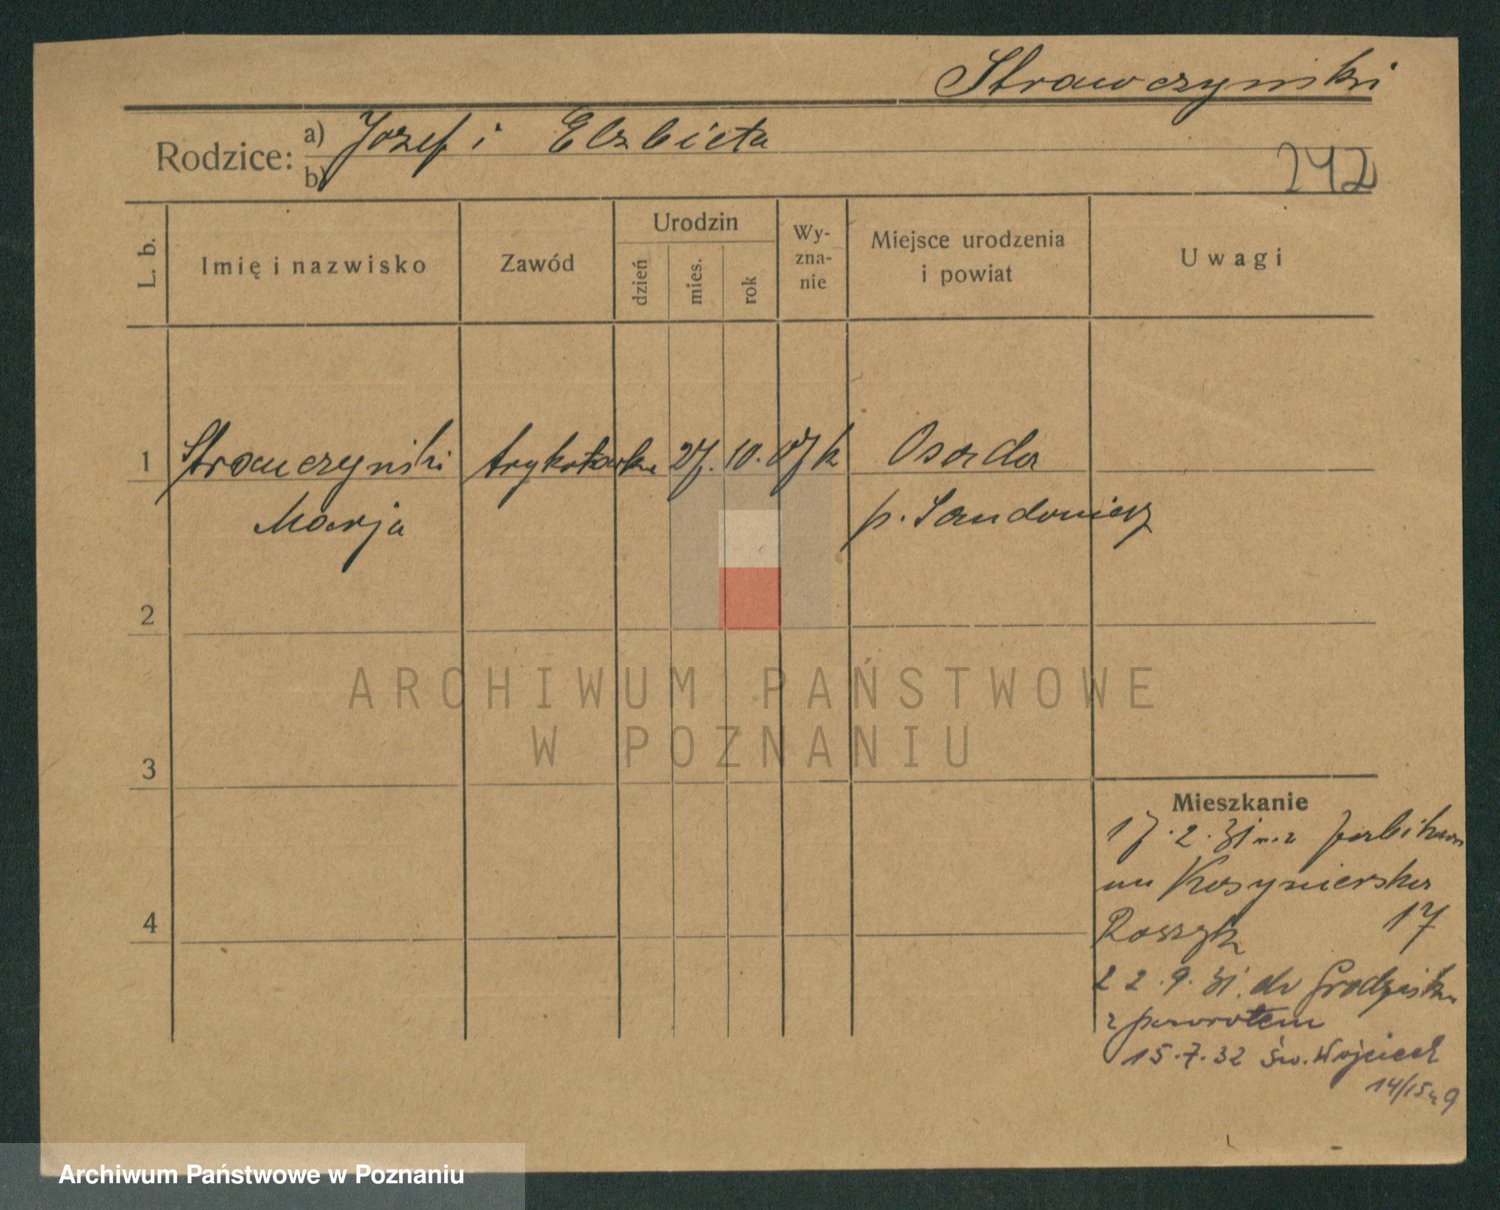 Strawczyński
Rodzice: a) Jozef i Elzbieta
b)
242
L. b.
Imię i nazwisko
Zawód
Urodzin
dzień
mies.
rok
Wy-
zna-
nie
Miejsce urodzenia
i powiat
Uwagi
1 Strawczyński trykotarka 27. 10. 07 k Osada
Marja p. Sandomierz
2
ARCHIWUM PAŃSTWOWE
W POZNANIU
3
Mieszkanie
17.2.31
17
4
22.9.31. do Grodziska
z powrotem
15.7.32 św. Wojciech
14/15
9
Archiwum Państwowe w Poznaniu